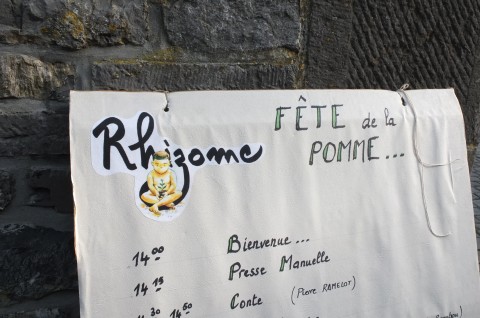 Rhizome
FÊTE de la
POMME...
14 00 Bienvenue...
14 15 Presse Manuelle
Conte (Pierre RAMELOT)